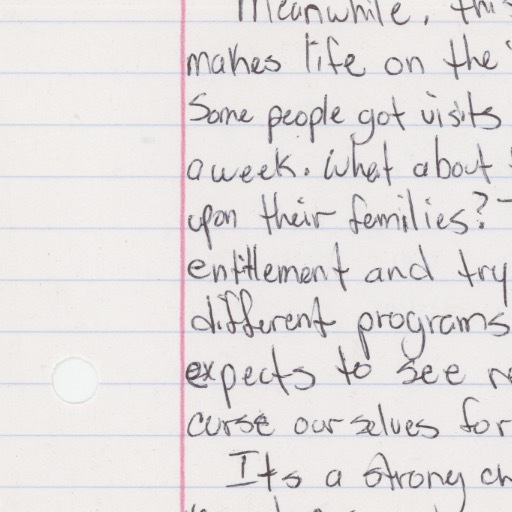 Meanwhile, this
makes life on the
Some people got visits
a week. What about
upon their families?
entitlement and try
different programs
expects to see
curse ourselves for
Its a strong